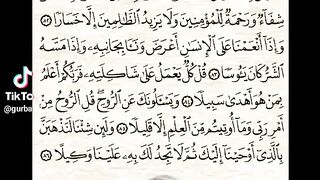 شِفَآءٌ وَرَحْمَةٌ لِّلْمُؤْمِنِينَ وَلَا يَزِيدُ ٱلظَّٰلِمِينَ إِلَّا خَسَارًا ٨٢
وَإِذَآ أَنْعَمْنَا عَلَى ٱلْإِنسَٰنِ أَعْرَضَ وَنَـَٔا بِجَانِبِهِۦ وَإِذَا مَسَّهُ
ٱلشَّرُّ كَانَ يَـُٔوسًا ٨٣ قُلْ كُلٌّ يَعْمَلُ عَلَىٰ شَاكِلَتِهِۦ فَرَبُّكُمْ أَعْلَمُ
بِمَنْ هُوَ أَهْدَىٰ سَبِيلًا ٨٤ وَيَسْـَٔلُونَكَ عَنِ ٱلرُّوحِ قُلِ ٱلرُّوحُ مِنْ
أَمْرِ رَبِّى وَمَآ أُوتِيتُم مِّنَ ٱلْعِلْمِ إِلَّا قَلِيلًا ٨٥ وَلَئِن شِئْنَا لَنَذْهَبَنَّ
بِٱلَّذِىٓ أَوْحَيْنَآ إِلَيْكَ ثُمَّ لَا تَجِدُ لَكَ بِهِۦ عَلَيْنَا وَكِيلًا ٨٦
TikTo
@gurba